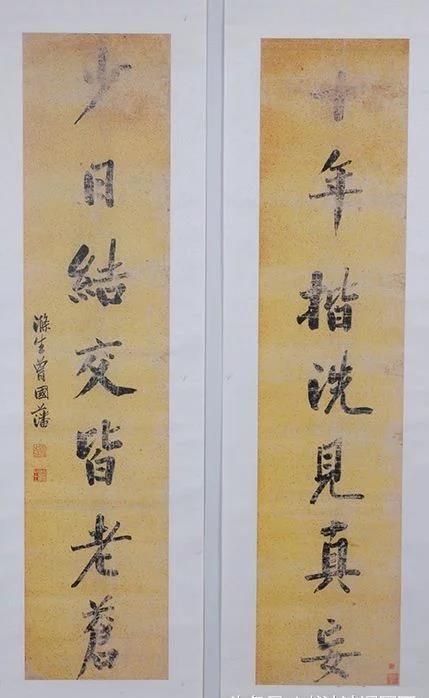 十年揩洗見真妄
少日結交皆老蒼
滌生曾國藩